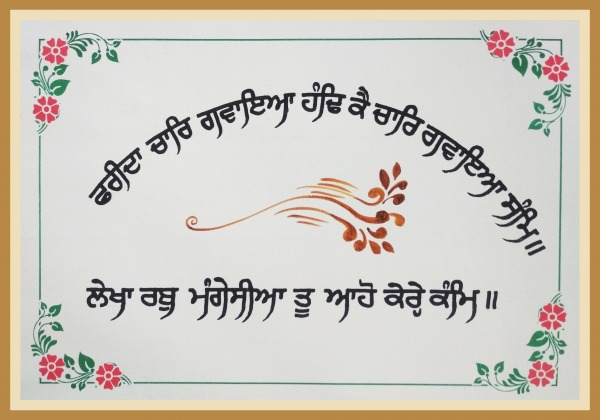 ਫਰੀਦਾ ਚਾਰਿ ਗਵਾਇਆ ਹੰਢਿ ਕੈ ਚਾਰਿ ਗਵਾਇਆ ਸੰਮਿ॥
ਲੇਖਾ ਰਬੁ ਮੰਗੇਸੀਆ ਤੂ ਆਹੋ ਕੇਰ੍ਹੇ ਕੰਮਿ॥